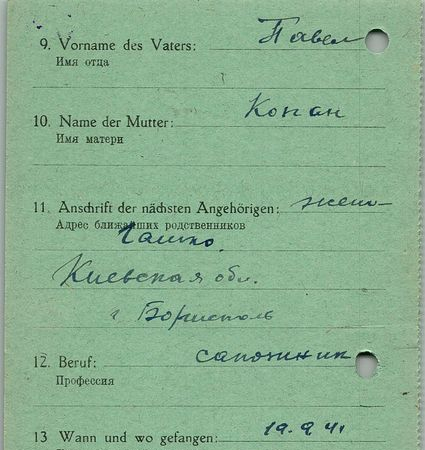 9. Vorname des Vaters: Павел
Имя отца
10. Name der Mutter: Копан
Имя матери
11. Anschrift der nächsten Angehörigen: жена
Адрес ближайших родственников
Киевская обл.
г Борисполь
12. Beruf: сапожник
Профессия
13 Wann und wo gefangen: 19.9 41